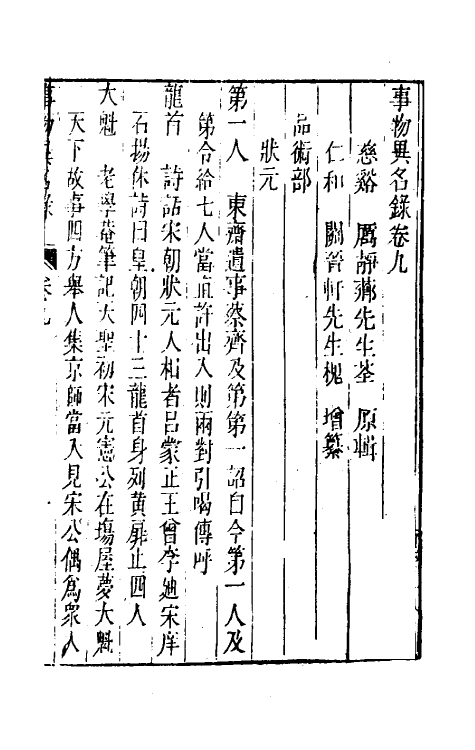 事物異名錄卷九
慈谿　厲靜薌先生荃　原輯
仁和　關晉軒先生槐　增纂
品術部
狀元
第一人　東齋遺事蔡齊及第第一詔自今第一人及
第令給七人當直許出入則兩對引喝傳呼
龍首　詩話宋朝狀元人相者呂蒙正王曾李廸宋庠
石揚休詩曰皇朝四十三龍首身列黃扉止四人
大魁　老學菴筆記天聖初宋元憲公在塲屋夢大魁
天下故事四方舉人集京師當入見宋公偶爲衆人
事物異名錄　卷九